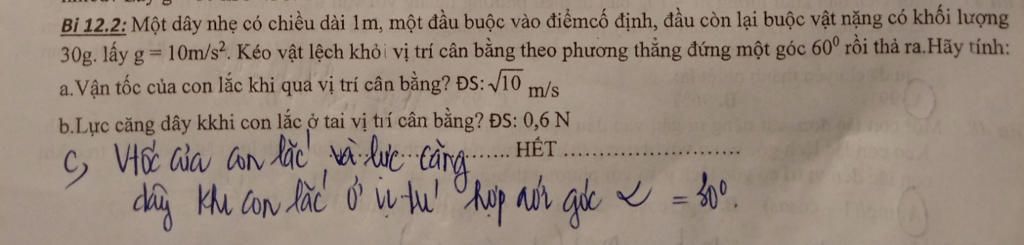 Bi 12.2: Một dây nhẹ có chiều dài 1m, một đầu buộc vào điểmcố định, đầu còn lại buộc vật nặng có khối lượng
30g. lấy g = 10m/s². Kéo vật lệch khỏi vị trí cân bằng theo phương thẳng đứng một góc 60⁰ rồi thả ra.Hãy tính:
a.Vận tốc của con lắc khi qua vị trí cân bằng? ĐS: √10 m/s
b.Lực căng dây kkhi con lắc ở tai vị trí cân bằng? ĐS: 0,6 N
....... HẾT ..............................
c, Vtốc của con lắc và lực căng
dây khi con lắc ở vị trí hợp với góc α = 30⁰